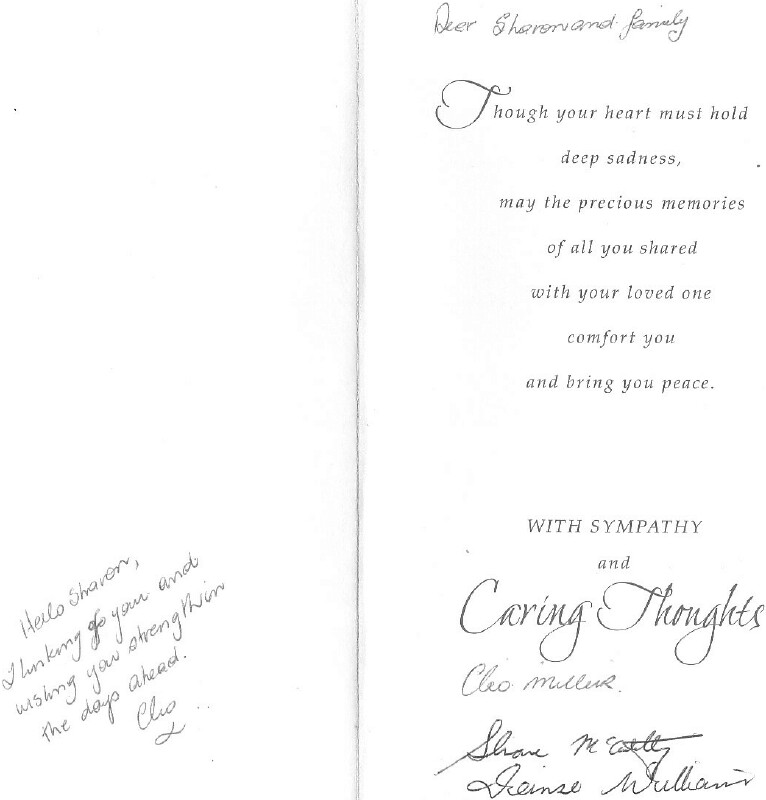 Hello Sharon,
Thinking of you and
wishing you strength in
the days ahead.
Cleo
Dear Sharon and family
Though your heart must hold
deep sadness,
may the precious memories
of all you shared
with your loved one
comfort you
and bring you peace.
WITH SYMPATHY
and
Caring Thoughts
Cleo
Williams